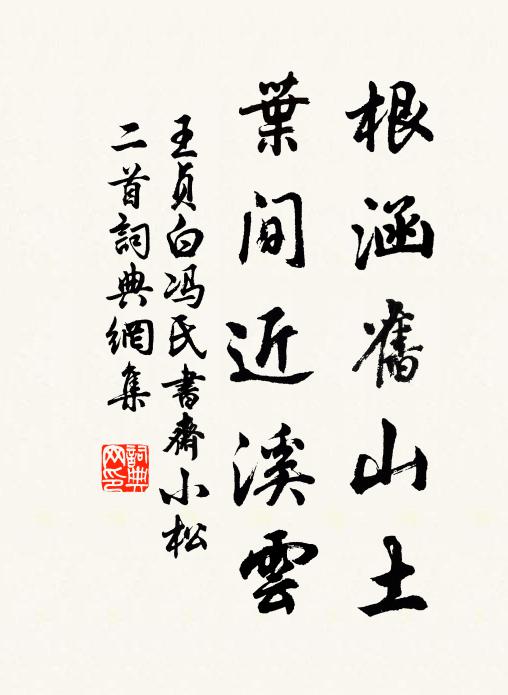 根涵舊山土
葉間近溪雲
王貞白冯氏書齋小松
二首詞典網集
詞典网印